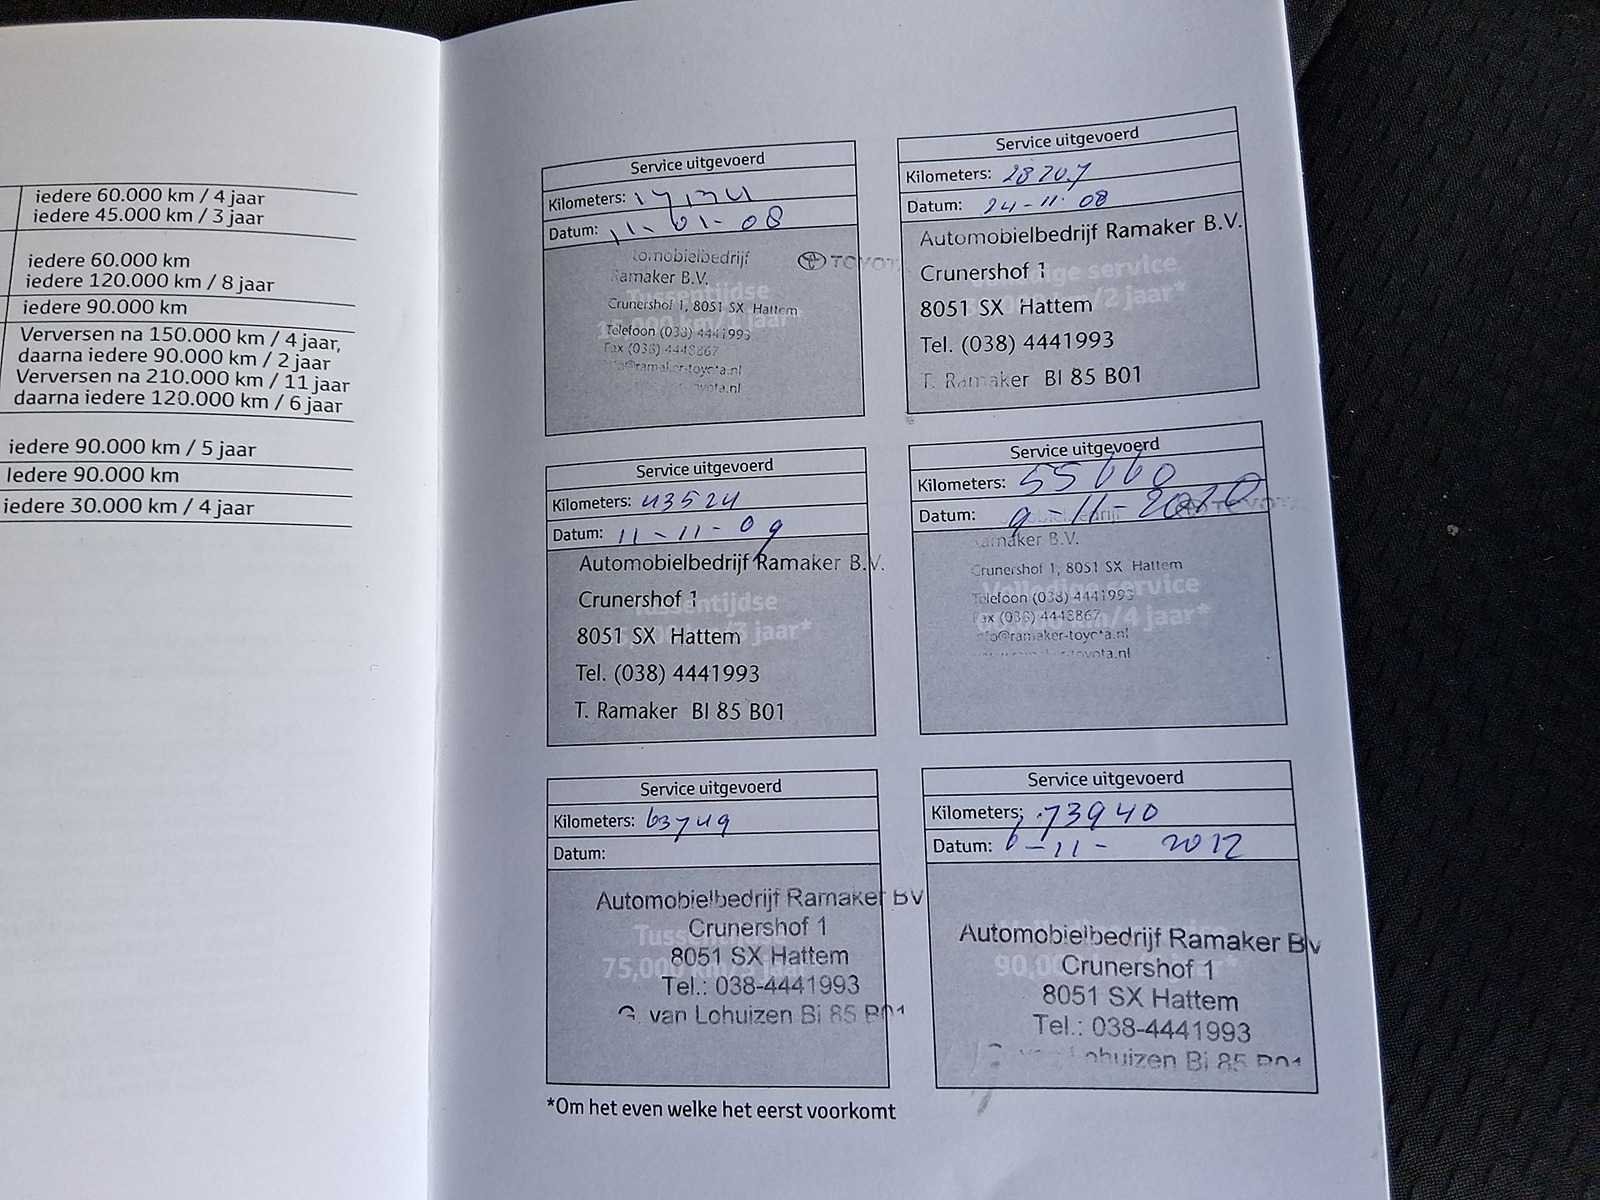 iedere 60.000 km / 4 jaar
iedere 45.000 km / 3 jaar
iedere 60.000 km
iedere 120.000 km / 8 jaar
iedere 90.000 km
Verversen na 150.000 km / 4 jaar,
daarna iedere 90.000 km / 2 jaar
Verversen na 210.000 km / 11 jaar
daarna iedere 120.000 km / 6 jaar
iedere 90.000 km / 5 jaar
Iedere 90.000 km
iedere 30.000 km / 4 jaar
Service uitgevoerd
Kilometers:
Datum: 11-01-08
TOYOTA
Ramaker B.V.
Tussentijdse
Crunershof 1, 8051 SX Hattem
Telefoon (038) 4441993
Fax (038) 4448867
Service uitgevoerd
Kilometers: 28207
Datum: 24-11-08
Automobielbedrijf Ramaker B.V.
Crunershof 1
Volledige service
8051 SX Hattem
/2 jaar*
Tel. (038) 4441993
T. Ramaker BI 85 B01
Service uitgevoerd
Kilometers: 43524
Datum: 11-11-09
Automobielbedrijf Ramaker B.V.
Crunershof 1
Tussentijdse
8051 SX Hattem
km/3 jaar*
Tel. (038) 4441993
T. Ramaker BI 85 B01
Service uitgevoerd
Kilometers: 55660
Datum: 9-11-2010
TOYOTA
Ramaker B.V.
Crunershof 1, 8051 SX Hattem
Volledige service
Telefoon (038) 4441993
Fax (038) 4448867
km/4 jaar*
info@ramaker-toyota.nl
Service uitgevoerd
Kilometers: 63749
Datum:
Automobielbedrijf Ramaker BV
Crunershof 1
Tussentijdse
8051 SX Hattem
75,000 km/
Tel.: 038-4441993
G. van Lohuizen Bi 85 B01
Service uitgevoerd
Kilometers: 73940
Datum: 6-11- 2012
Automobielbedrijf Ramaker BV
Crunershof 1
90,00
8051 SX Hattem
Tel.: 038-4441993
Lohuizen Bi 85 B01
*Om het even welke het eerst voorkomt